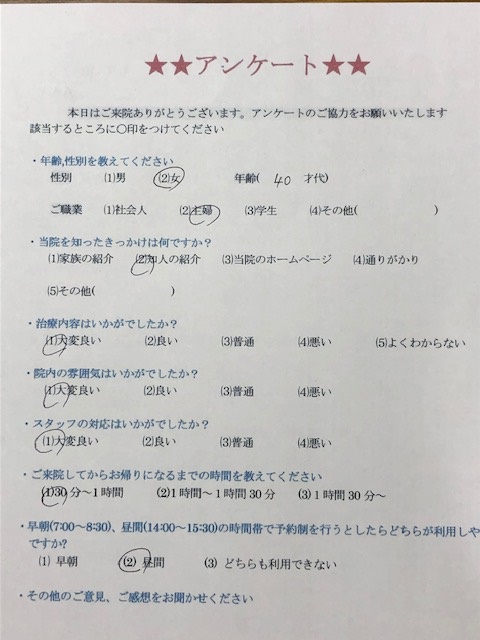 ★★アンケート★★
本日はご来院ありがとうございます。アンケートのご協力をお願いいたします
該当するところに〇印をつけてください
・年齢,性別を教えてください
性別 (1)男 (2)女 年齢( 40 才代)
ご職業 (1)社会人 (2)主婦 (3)学生 (4)その他( )
・当院を知ったきっかけは何ですか？
(1)家族の紹介 (2)知人の紹介 (3)当院のホームページ (4)通りがかり
(5)その他( )
・治療内容はいかがでしたか？
(1)大変良い (2)良い (3)普通 (4)悪い (5)よくわからない
・院内の雰囲気はいかがでしたか？
(1)大変良い (2)良い (3)普通 (4)悪い
・スタッフの対応はいかがでしたか？
(1)大変良い (2)良い (3)普通 (4)悪い
・ご来院してからお帰りになるまでの時間を教えてください
(1)30分～1時間 (2)1時間～1時間30分 (3)1時間30分～
・早朝(7:00～8:30)、昼間(14:00～15:30)の時間帯で予約制を行うとしたらどちらが利用しや
ですか?
(1) 早朝 (2) 昼間 (3) どちらも利用できない
・その他のご意見、ご感想をお聞かせください